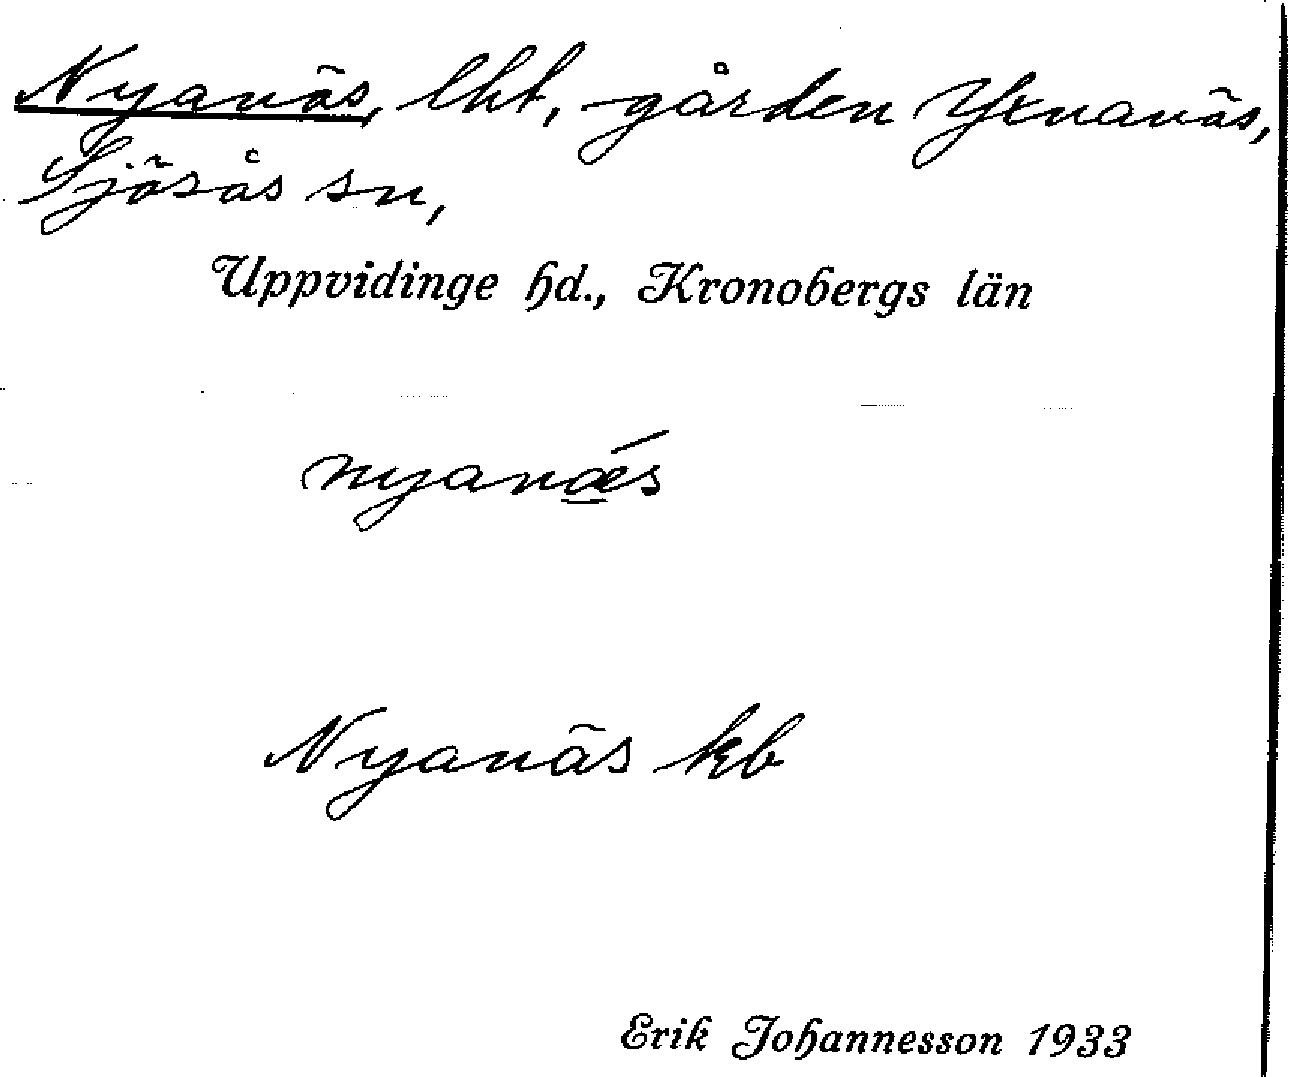 Nyanäs, lht, gården Yxnanäs,
Sjösås sn,
Uppvidinge hd., Kronobergs län
nyanǽs
Nyanäs kb
Erik Johannesson 1933